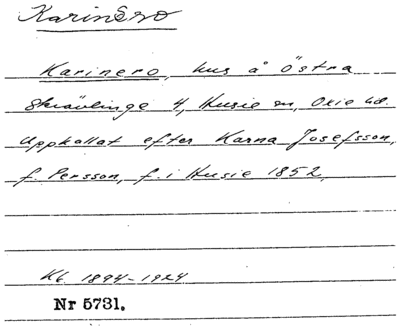 Karinero
Karinero, hus å Östra
Skrävlinge 4, Husie sn, Oxie hd.
Uppkallat efter Karna Josefsson,
f. Persson, f. i Husie 1852.
Kb. 1894-1924
Nr 5731.